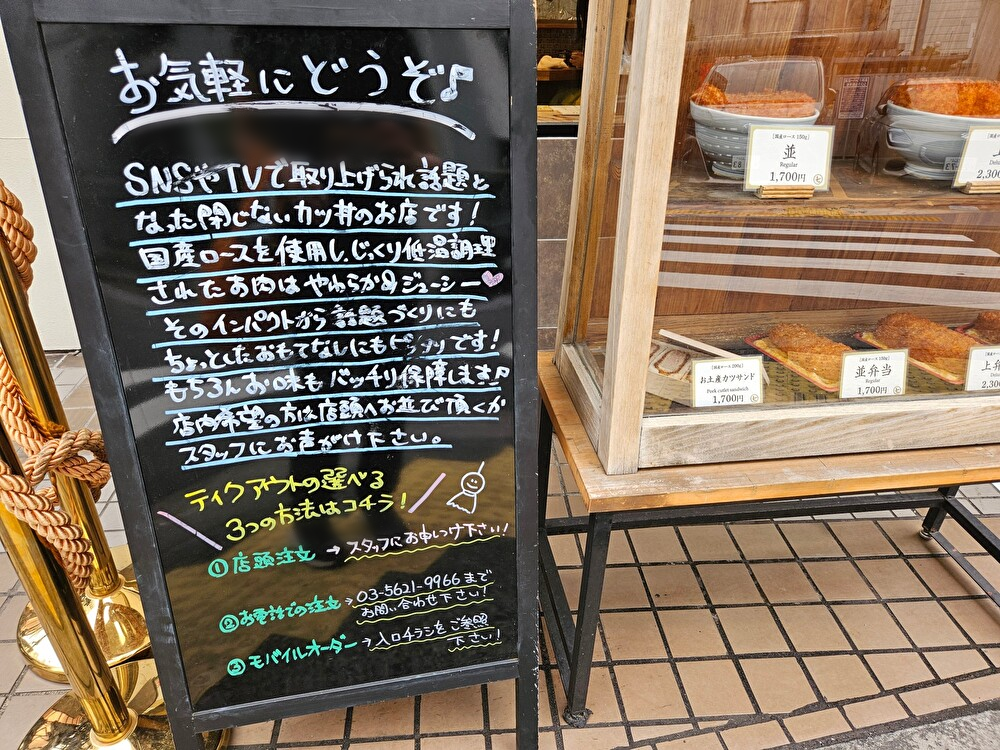 お気軽にどうぞ♪
SNSやTVで取り上げられ話題と
なった閉じないカツ丼のお店です!
国産ロースを使用し、じっくり低温調理
されたお肉はやわらか&ジューシー♥
そのインパクトから話題づくりにも
ちょっとしたおもてなしにもピッタリです!
もちろんお味もバッチリ保障します♪
店内希望の方は店頭へお並び頂くか
スタッフにお声がけ下さい。
テイクアウトの選べる
3つの方法はコチラ!
①店頭注文 → スタッフにお申しつけ下さい!
②お電話での注文 → 03-5621-9966まで
お問い合わせ下さい!
③モバイルオーダー → 入口チラシをご参照
下さい!
[国産ロース 150g]
並
Regular
1,700円
上
2,300
[国産ロース 200g]
お土産カツサンド
Pork cutlet sandwich
1,700円
[国産ロース 150g]
並弁当
Regular
1,700円
上弁
2,300